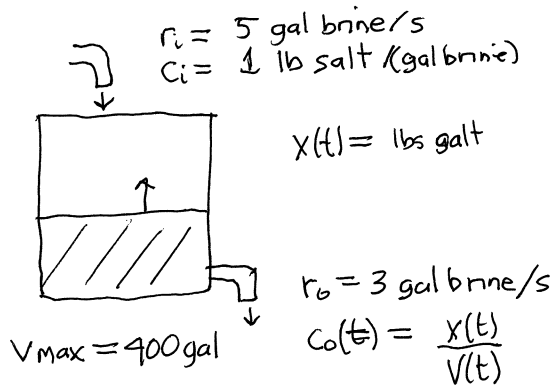 ri = 5 gal brine/s
Ci = 1 lb salt /(gal brine)
X(t) = lbs galt
ro = 3 gal brine/s
Co(t) = X(t)/V(t)
Vmax = 400 gal